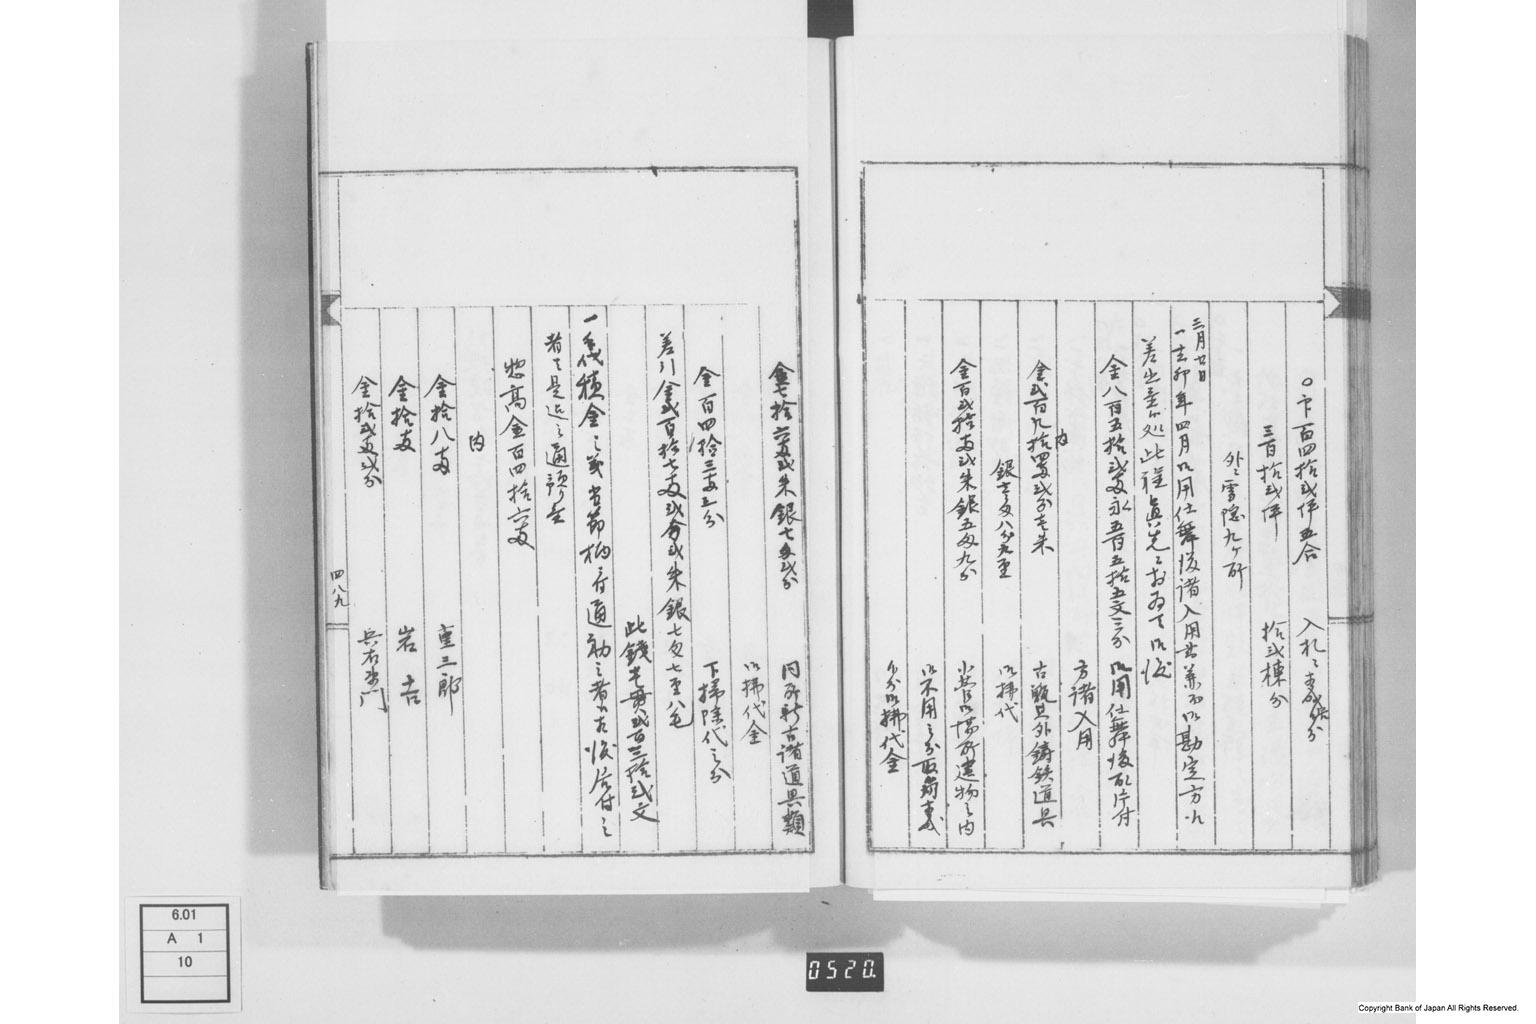 〇〆百四拾弐坪五合 入札之
三百拾弐坪 拾弐棟分
外ニ雪隠九ヶ所
三月廿日
一去卯年四月御用仕舞後諸入用 御勘定方江
差出置候処此程 御下ケ
金八百五拾弐両永五百五拾五文三分 御用仕舞後取片付
方諸入用
内
金弐百九拾四両弐分壱朱 古 其外鋳鉄道具
銀壱匁八分九厘 御払代
金百弐拾両弐朱銀五匁九分 御場所建物之内
御不用之分取崩
御払代金
金七拾六両弐朱銀七匁弐分 同所新古諸道具類
御払代金
金百四拾三両三分 下掃除代之分
差引金弐百拾七両弐分弐朱銀七匁七厘八毛
此銭壱貫弐百三拾弐文
一年代積金之義当節柄ニ付通勤之者 後片付之
者 是迄之通預り置
惣高金百四拾六両
内
金拾八両 重三郎
金拾両 岩吉
金拾弐両弐分 兵右衛門
四八九
6.01
A 1
10
0520.
Copyright Bank of Japan All Rights Reserved.